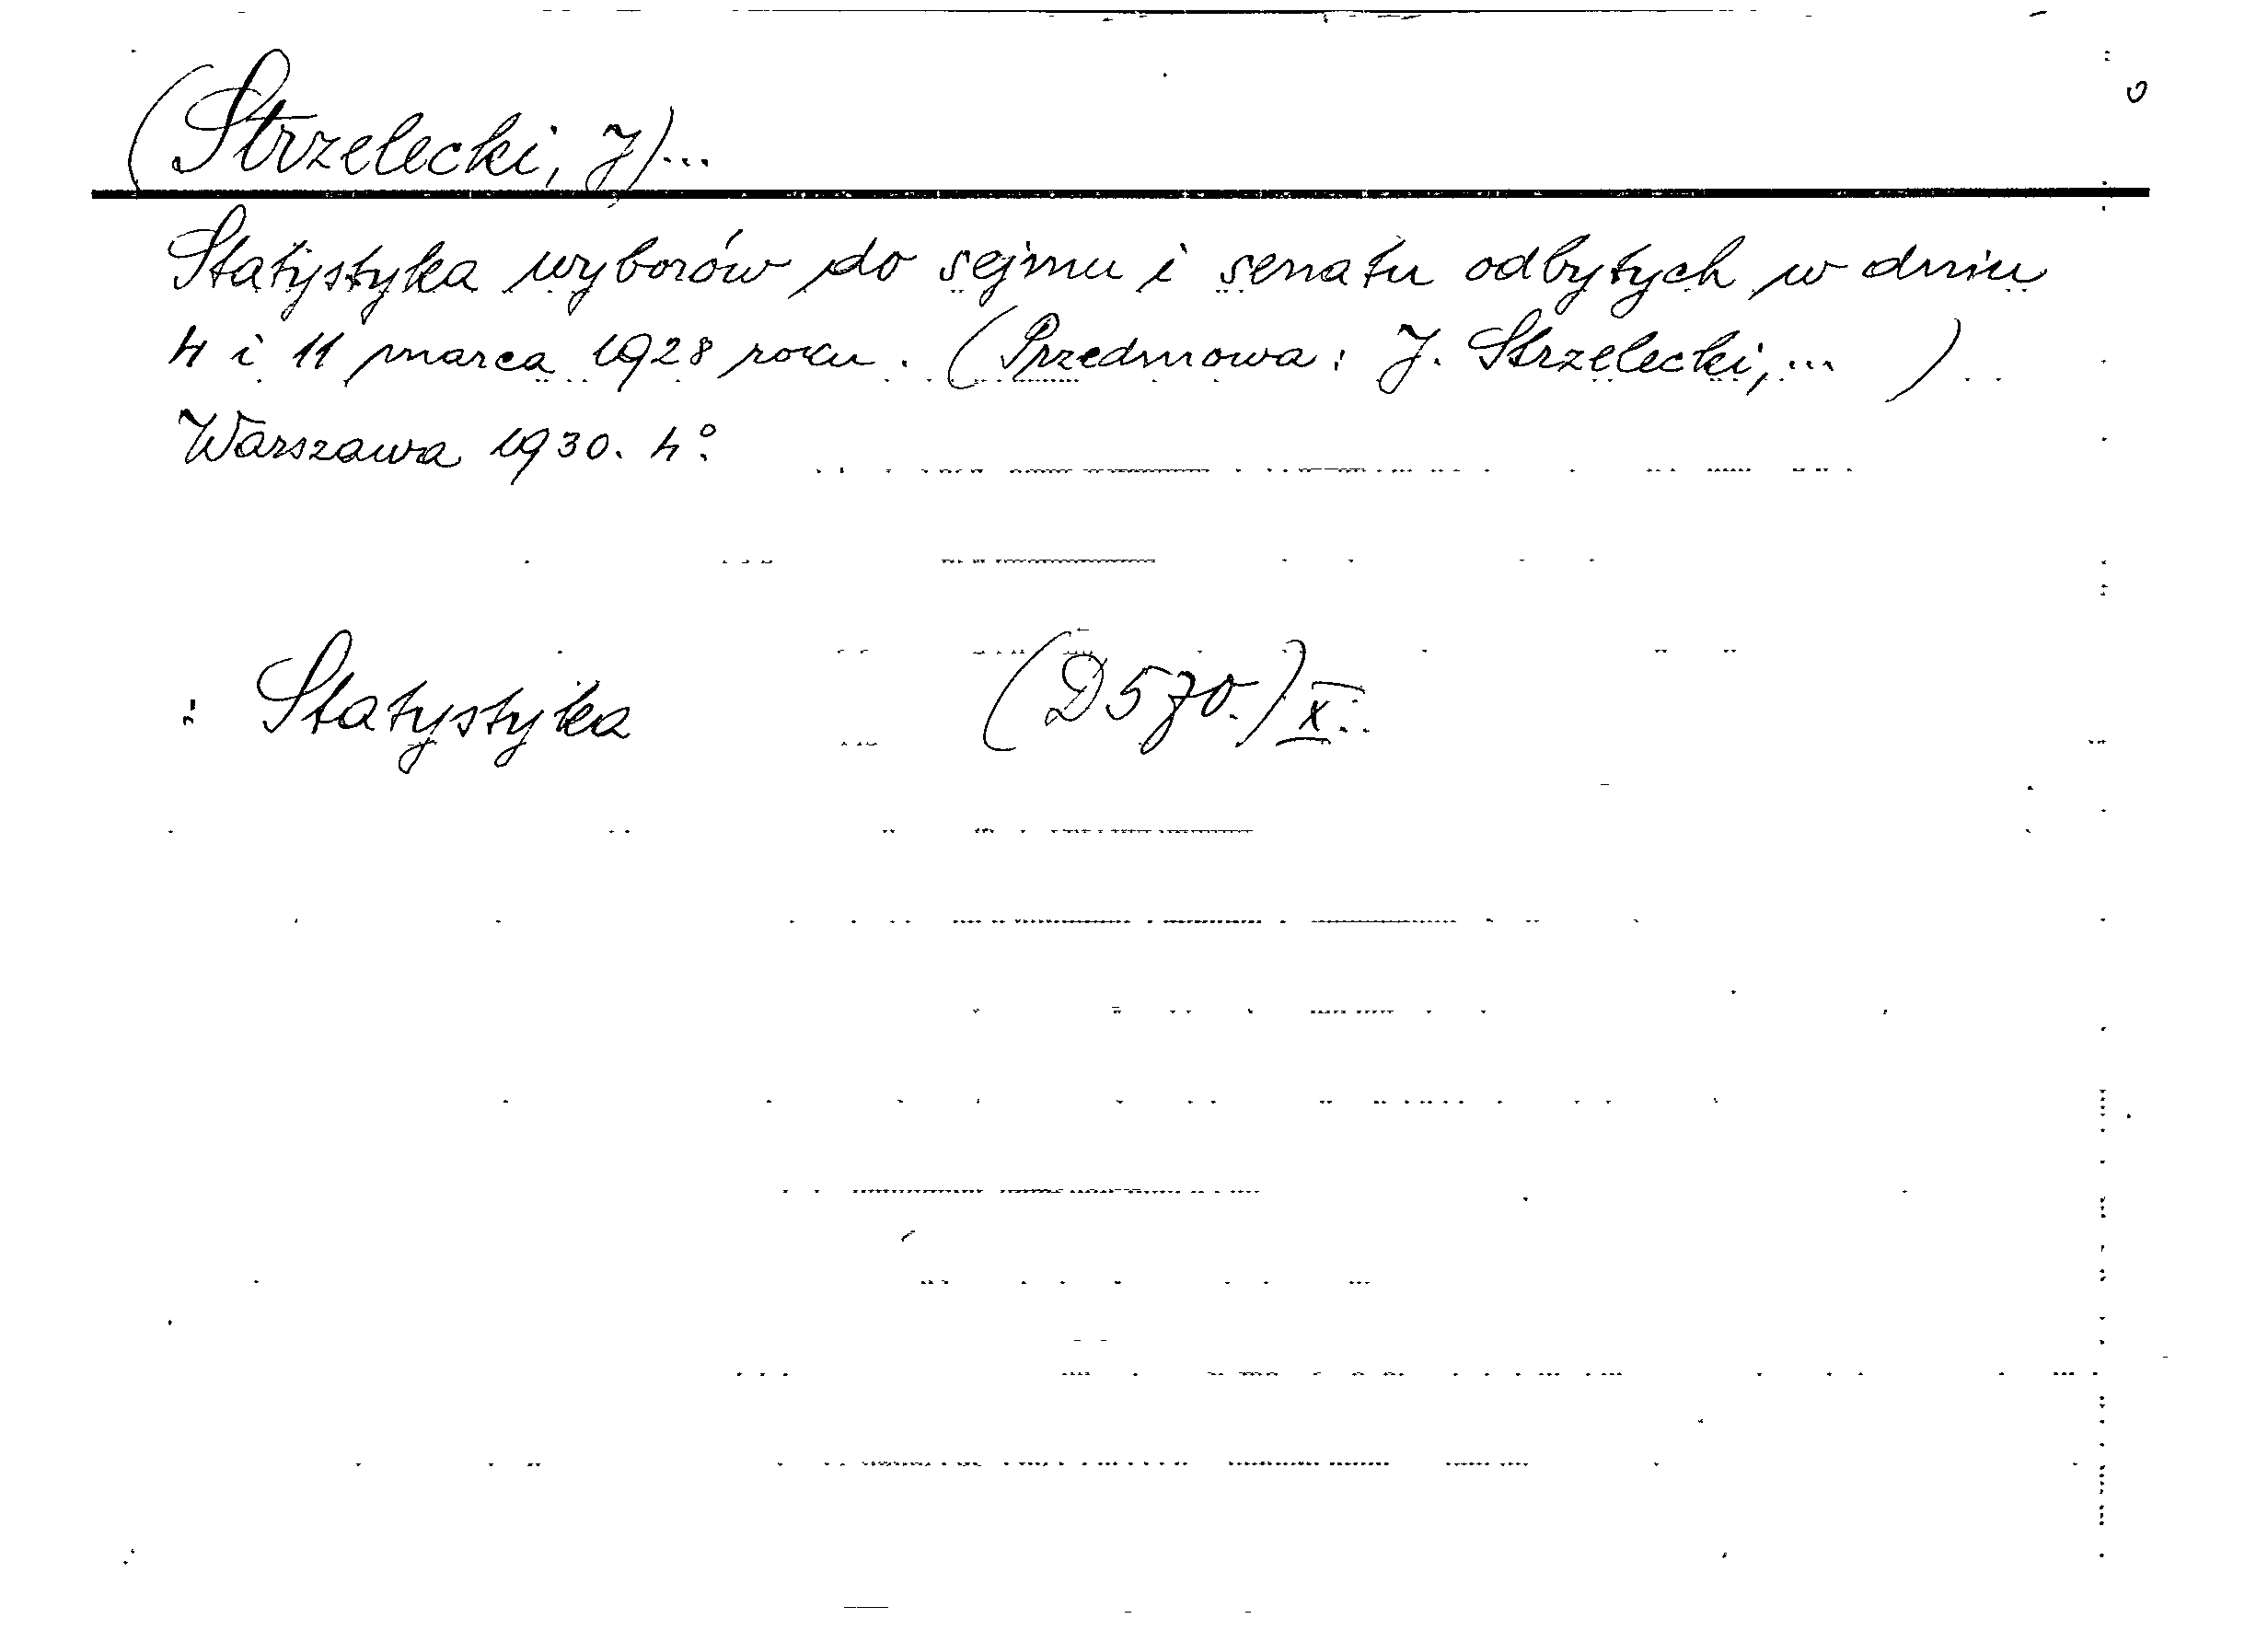 (Strzelecki, J)...
Statystyka wyborów do sejmu i senatu odbytych w dniu
4 i 11 marca 1928 roku. (Przedmowa: J. Strzelecki,... )
Warszawa 1930. 4°.
: Statystyka (D 570.) X.